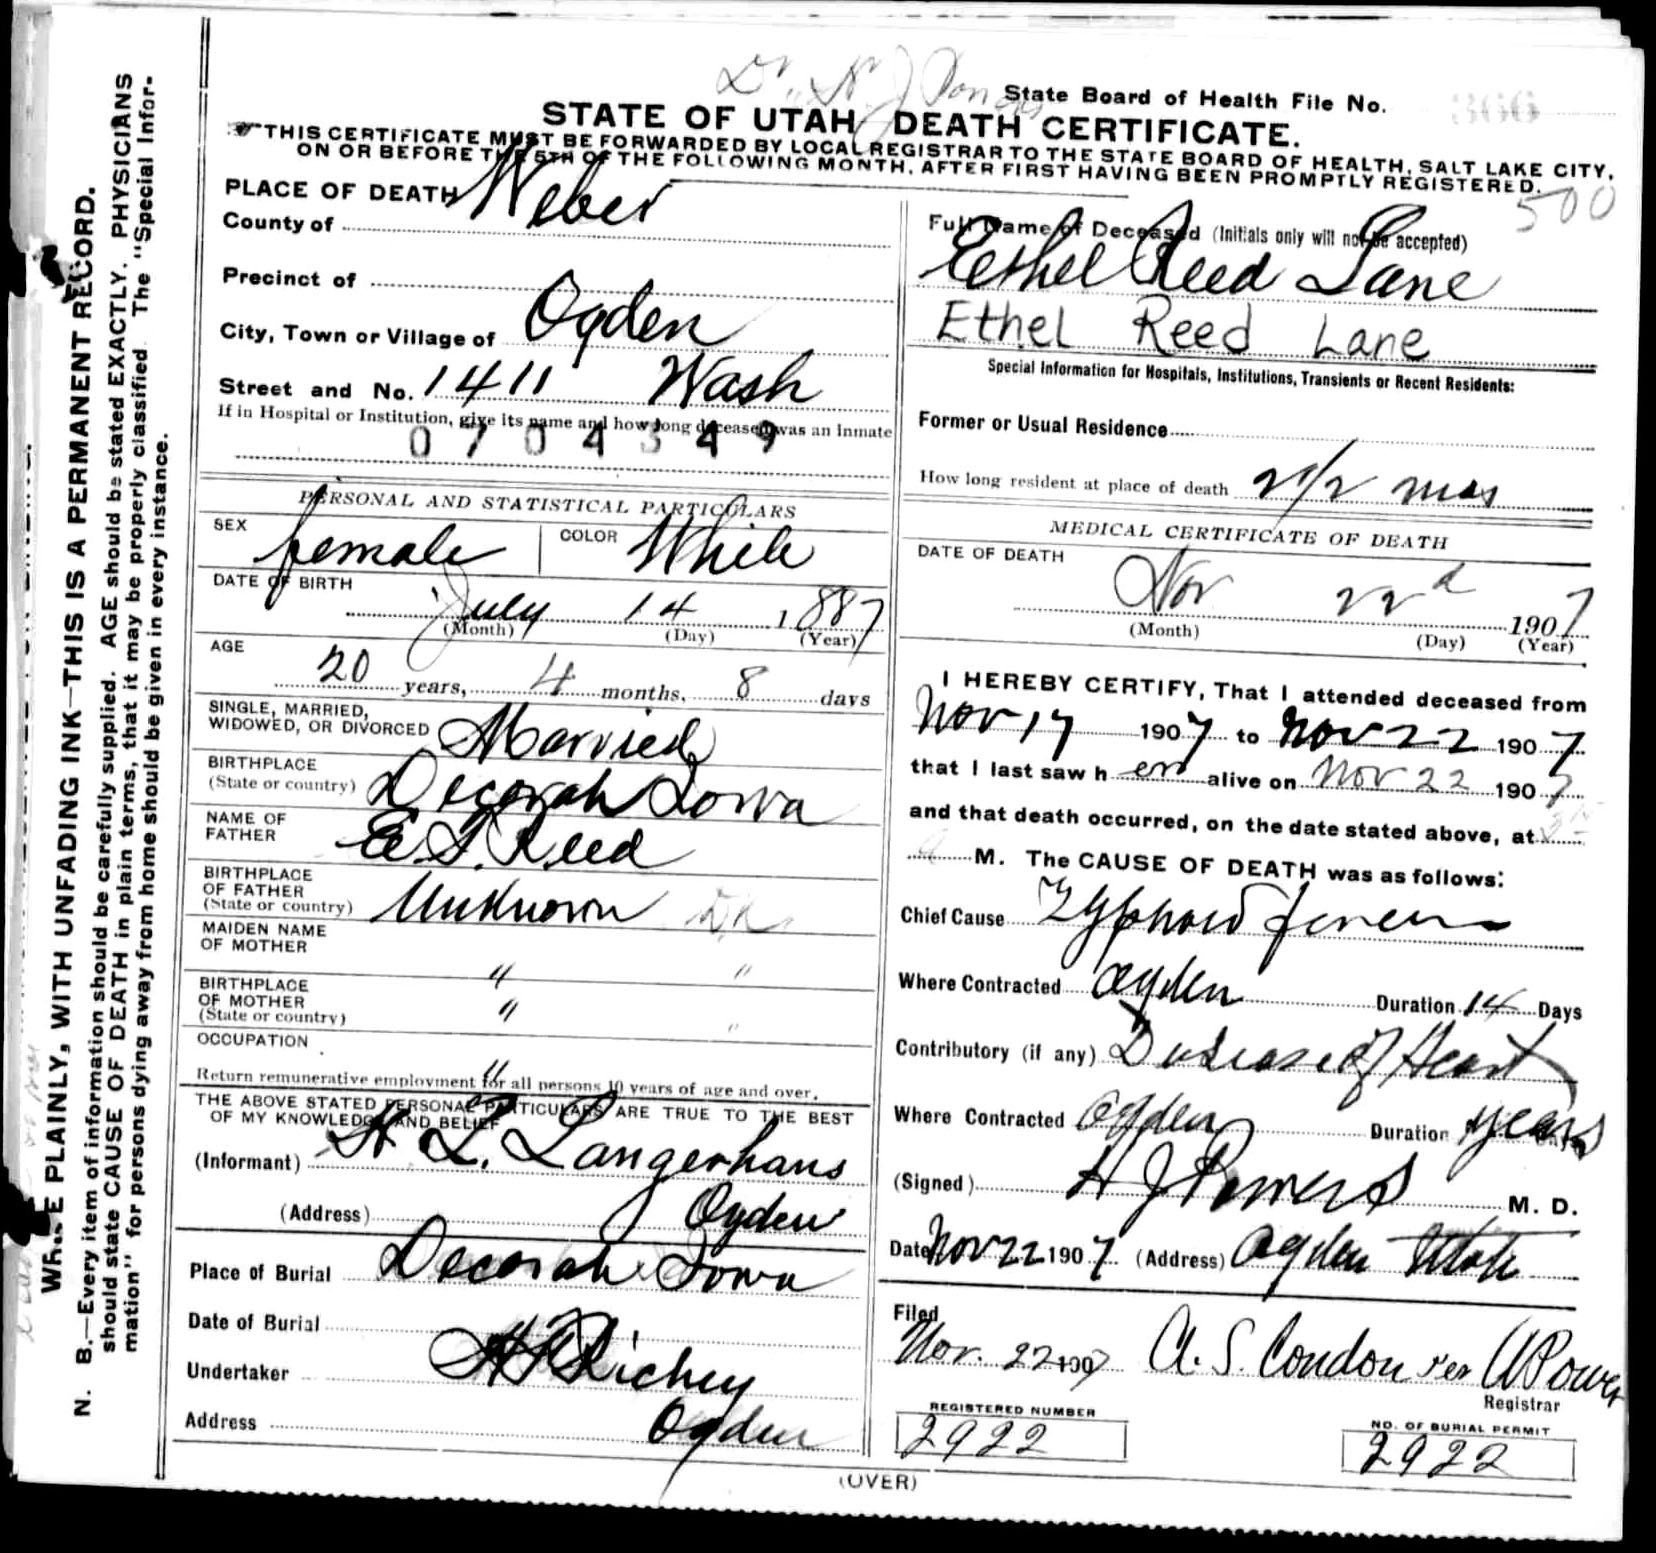 State Board of Health File No. 366
STATE OF UTAH, DEATH CERTIFICATE.
THIS CERTIFICATE MUST BE FORWARDED BY LOCAL REGISTRAR TO THE STATE BOARD OF HEALTH, SALT LAKE CITY,
ON OR BEFORE THE 5TH OF THE FOLLOWING MONTH, AFTER FIRST HAVING BEEN PROMPTLY REGISTERED.
500
PLACE OF DEATH
County of Weber
Precinct of
City, Town or Village of Ogden
Street and No. 1411 Wash
If in Hospital or Institution, give its name and how long deceased was an Inmate
0704349
PERSONAL AND STATISTICAL PARTICULARS
SEX female COLOR White
DATE OF BIRTH
July 14 1887
(Month) (Day) (Year)
AGE
20 years, 4 months, 8 days
SINGLE, MARRIED,
WIDOWED, OR DIVORCED Married
BIRTHPLACE
(State or country) Decorah Iowa
NAME OF
FATHER E. S. Reed
BIRTHPLACE
OF FATHER
(State or country) Unknown
MAIDEN NAME
OF MOTHER "
BIRTHPLACE
OF MOTHER
(State or country) "
OCCUPATION
"
Return remunerative employment for all persons 10 years of age and over.
THE ABOVE STATED PERSONAL PARTICULARS ARE TRUE TO THE BEST
OF MY KNOWLEDGE AND BELIEF
(Informant) H. L. Langerhans
(Address) Ogden
Place of Burial Decorah Iowa
Date of Burial
Undertaker Richey
Address Ogden
Full Name of Deceased (Initials only will not be accepted)
Ethel Reed Lane
Ethel Reed Lane
Special Information for Hospitals, Institutions, Transients or Recent Residents:
Former or Usual Residence
How long resident at place of death 2 1/2 mos
MEDICAL CERTIFICATE OF DEATH
DATE OF DEATH
Nov 22d 1907
(Month) (Day) (Year)
I HEREBY CERTIFY, That I attended deceased from
Nov 17 1907 to Nov 22 1907
that I last saw her alive on Nov 22 1907
and that death occurred, on the date stated above, at
M. The CAUSE OF DEATH was as follows:
Chief Cause Typhoid fever
Where Contracted Ogden Duration 14 Days
Contributory (if any) Disease of Heart
Where Contracted Ogden Duration years
(Signed) H J Powers M. D.
Date Nov 22 1907 (Address) Ogden Utah
Filed
Nov. 22 1907 A. S. Condon per Power
Registrar
REGISTERED NUMBER
2922
NO. OF BURIAL PERMIT
2922
(OVER)
WRITE PLAINLY, WITH UNFADING INK—THIS IS A PERMANENT RECORD.
N. B.—Every item of information should be carefully supplied. AGE should be stated EXACTLY. PHYSICIANS
should state CAUSE OF DEATH in plain terms, that it may be properly classified. The "Special Infor-
mation" for persons dying away from home should be given in every instance.